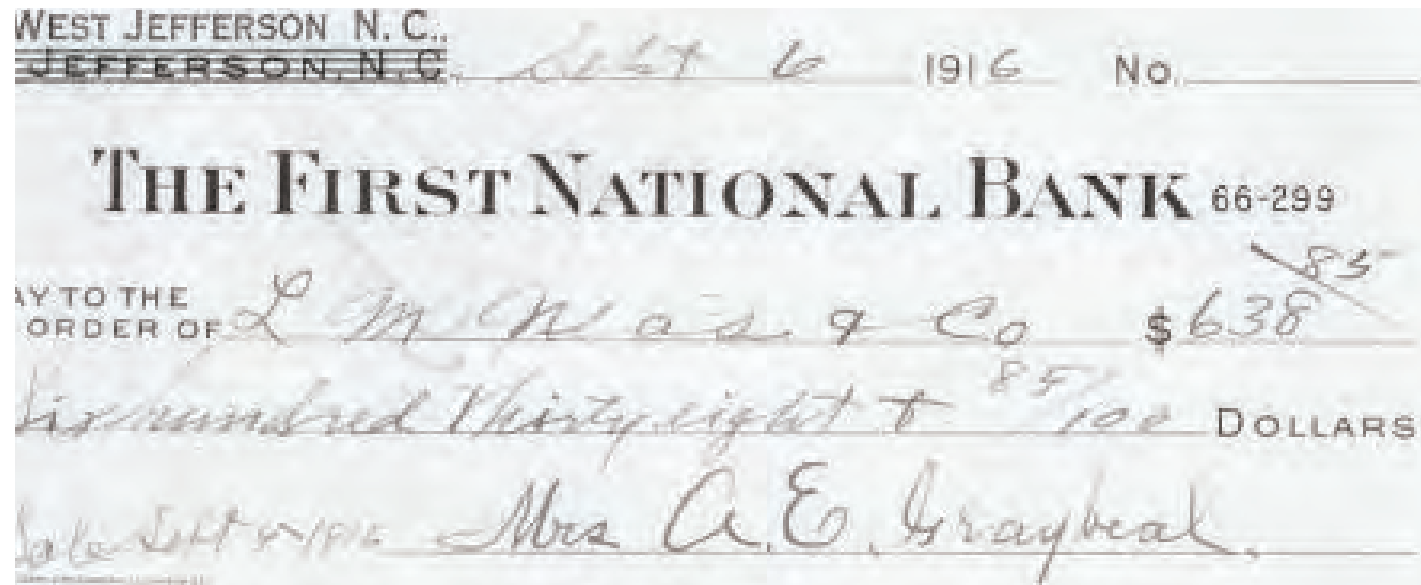 WEST JEFFERSON N. C.,
JEFFERSON, N. C. Sept 6 1916 No.
THE FIRST NATIONAL BANK 66-299
AY TO THE
ORDER OF L M & Co $638 85
Six hundred thirty eight + 85/100 DOLLARS
Sale Sept 1916 Mrs A. E. Graybeal.